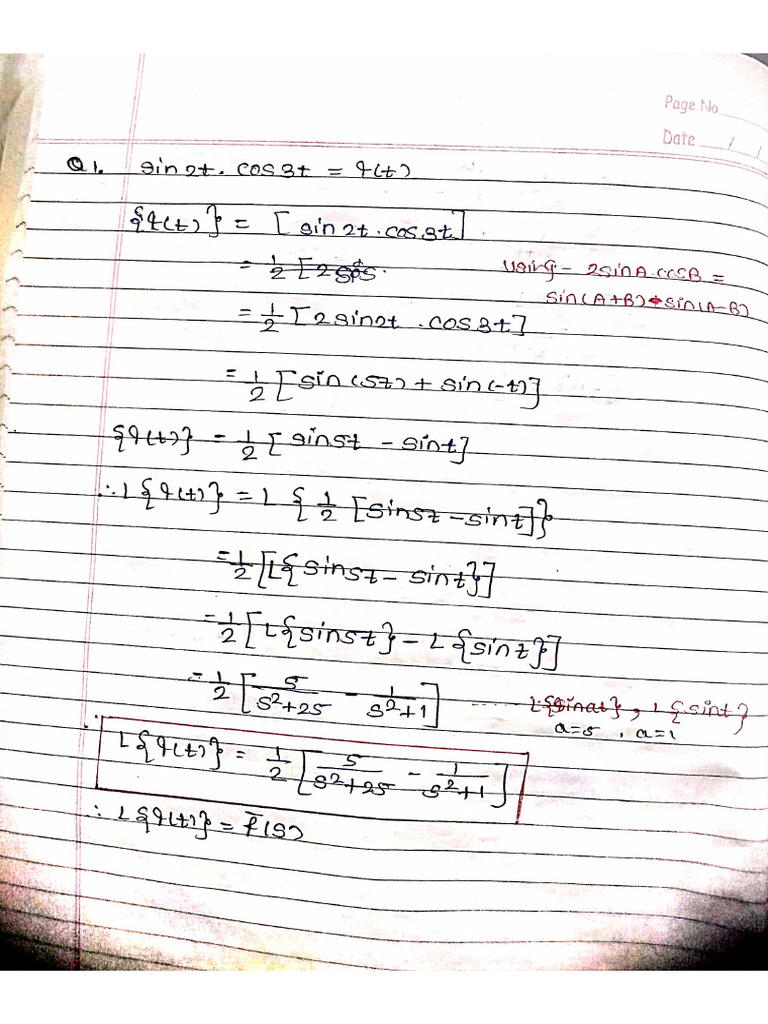 Page No.
Date / /
Q1. sin2t. cos3t = f(t)
{f(t)} = [sin2t.cos3t]
= 1/2 [2
using - 2sinA.cosB =
sin(A+B)+sin(A-B)
= 1/2 [2sin2t .cos3t]
= 1/2 [sin(5t) + sin(-t)]
{f(t)} = 1/2 [sin5t - sint]
∴ L{f(t)} = L {1/2 [sin5t - sint]}
= 1/2 [L{sin5t - sint}]
= 1/2 [L{sin5t} - L{sint}]
= 1/2 [5/(s²+25) - 1/(s²+1)] ...... L{sinat}, L{sint}
a=5 , a=1
∴ L{f(t)} = 1/2 [5/(s²+25) - 1/(s²+1)]
∴ L{f(t)} = f̄(s)